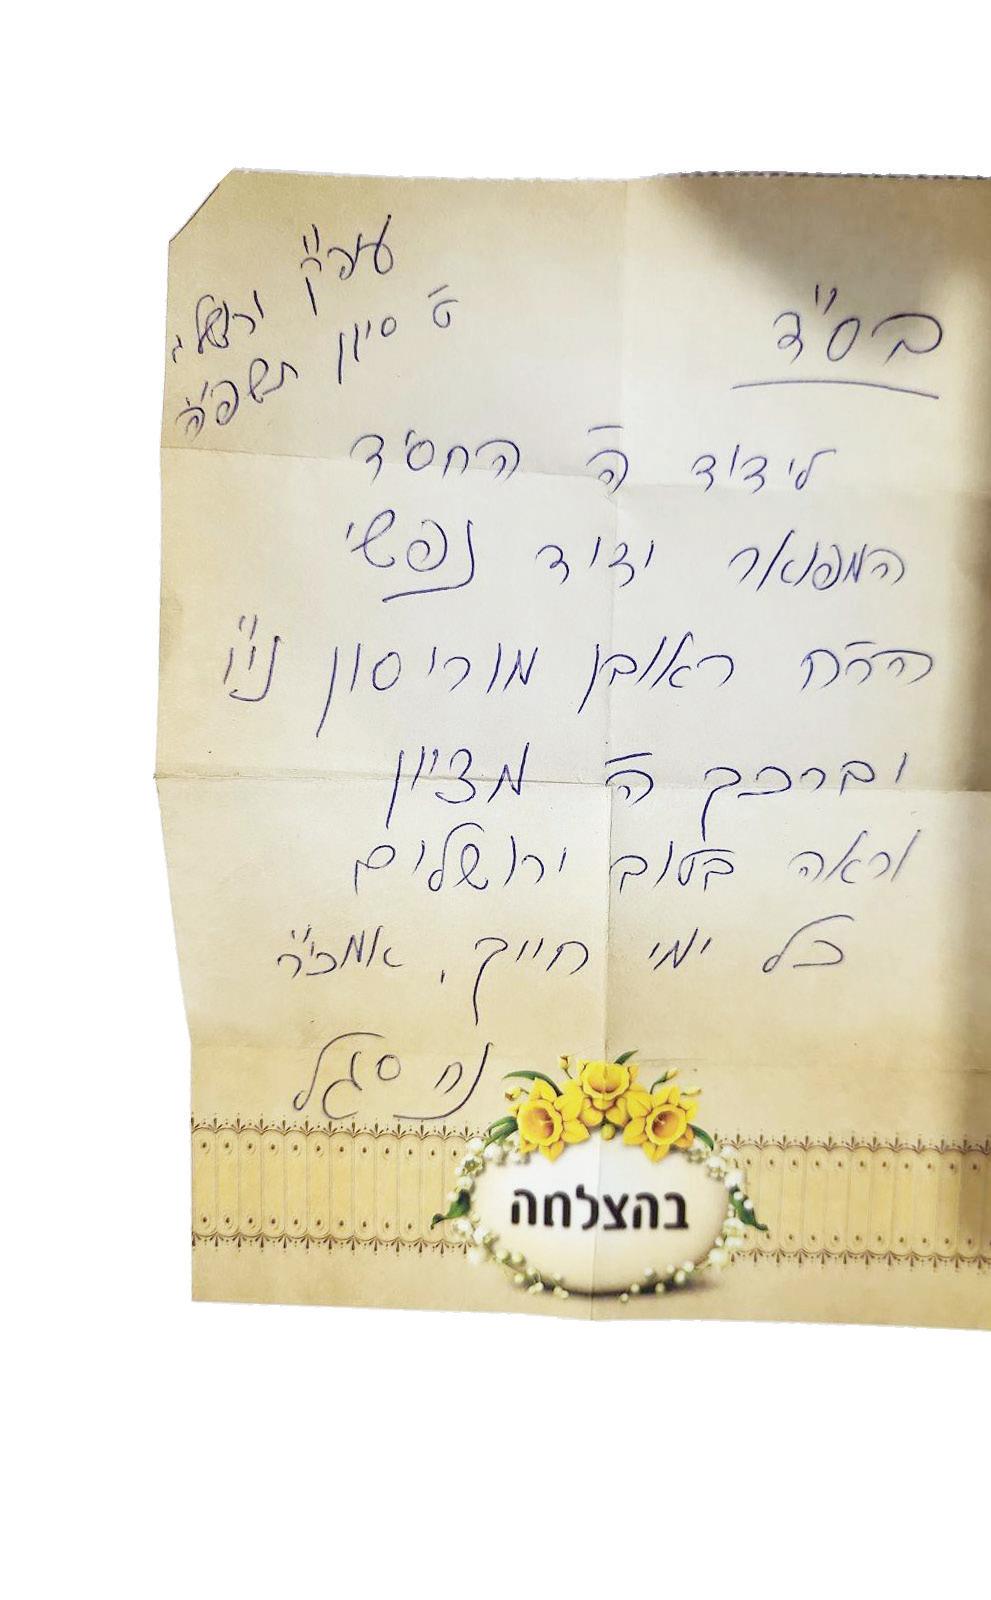 בס"ד
עיה"ק ירושלי'
ט' סיון תשפ"ה
לידיד ה' החסיד
המפואר ידיד נפשי
הרה"ח ראובן מוריסון ני"ו
יברכך ה' מציון
וראה בטוב ירושלים
כל ימי חייך, אמכי"ר
נח סגל
בהצלחה